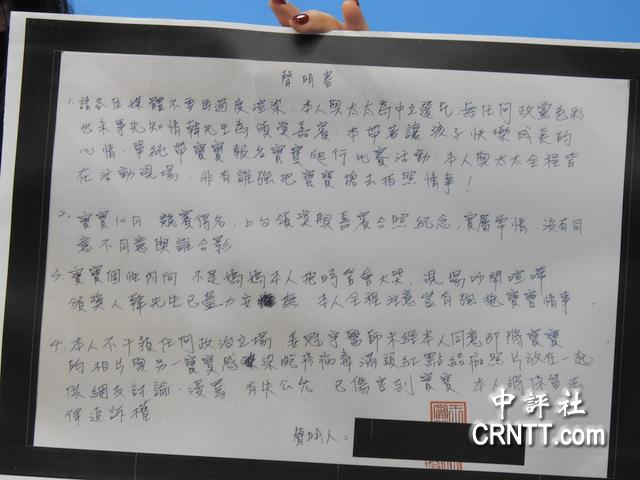 聲明書
1. 請各位媒體不要再過度渲染，本人與太太為中立選民，無任何政黨色彩
也未事先知情韓先生為頒獎嘉賓，本帶著讓孩子快樂成長的
心情，單純帶寶寶報名寶寶爬行比賽活動，本人與太太全程皆
在活動現場，非有誰強把寶寶搶去拍照情事！
2. 寶寶10月，競賽得名，上台領獎與嘉賓合照紀念，實屬常情，沒有同
意不同意與誰合影
3. 寶寶個性內向，不是媽媽本人抱時皆會大哭，現場吵鬧喧嘩，
頒獎人韓先生已盡力安撫，本人全程注意豈有強抱寶寶情事。
4. 本人不干預任何政治立場，姜冠宇醫師未經本人同意即將寶寶
的相片與另一寶寶感染皰疹病毒滿頭紅點結痂照片放在一起
做網友討論，漫罵，有失公允，已傷害到寶寶，本人將保留法
律追訴權。
聲明人：
中評社
CRNTT.com